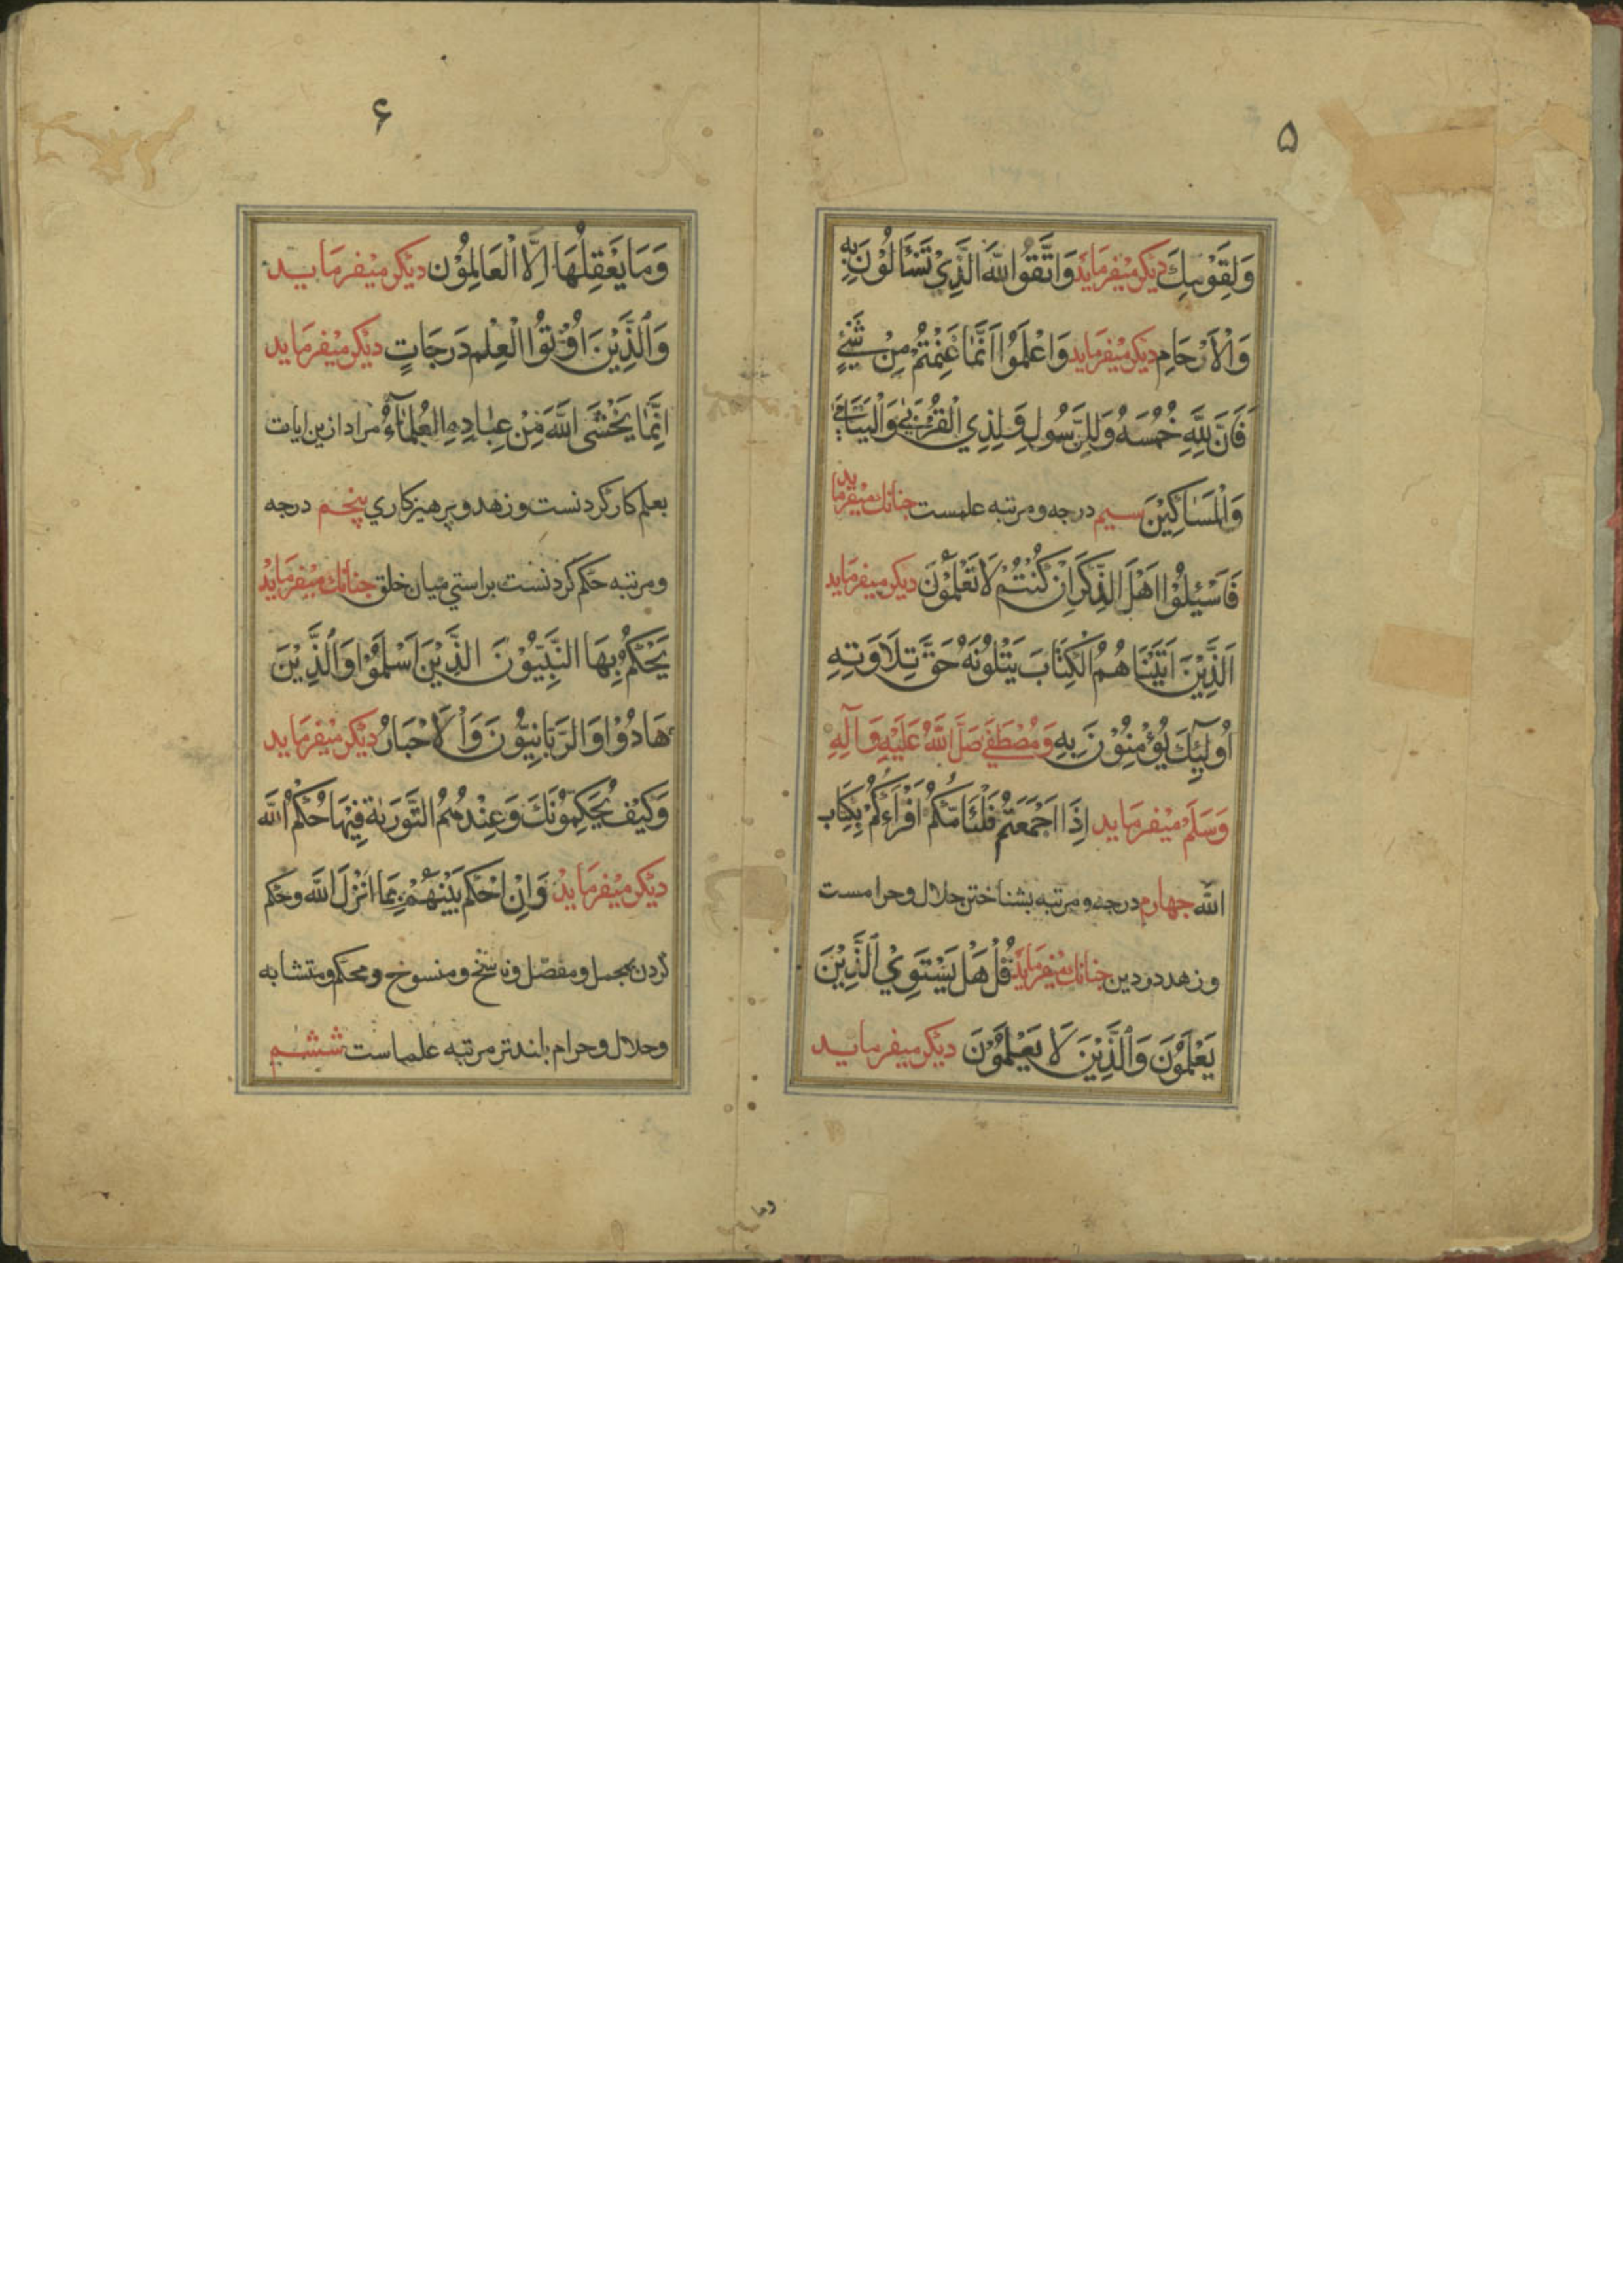 ۵
وَلِقَوْمِكَ دیکر میفرماید وَاتَّقُوا اللّٰهَ الَّذِيْ تَسَٓائَلُوْنَ بِهِ
وَالْاَرْحَامِ دیکر میفرماید وَاعْلَمُوْا اَنَّمَا غَنِمْتُمْ مِنْ شَيْئٍ
فَاَنَّ لِلّٰهِ خُمُسَهُ وَلِلرَّسُولِ وَلِذِي الْقُرْبٰي وَالْيَتَامٰي
وَالْمَسَاكِيْنَ سیم درجه و مرتبه علمست جنانك میفرماید
فَاَسْئِلُوْا اَهْلَ الذِّكْرِ اِنْ كُنْتُمْ لَا تَعْلَمُوْنَ دیکر میفرماید
اَلَّذِيْنَ اٰتَيْنَاهُمُ الْكِتَابَ يَتْلُونَهُ حَقَّ تِلَاوَتِهِ
اُولٰٓئِكَ يُؤْمِنُوْنَ بِهِ وَمُصْطَفٰي صَلَّي اللّٰهُ عَلَيْهِ وَآلِهِ
وَسَلَّمْ میفرماید اِذَا اجْمَعْتُمْ فَلْيَامَّكُمْ اَقْرَاءَكُمْ بِكِتَابِ
اللّٰه جهارم درجه و مرتبه بشناختن حلال و حرامست
و زهد در دین جنانك میفرماید قُلْ هَلْ يَسْتَوِيْ الَّذِيْنَ
يَعْلَمُوْنَ وَالَّذِيْنَ لَا يَعْلَمُوْنَ دیکر میفرماید
وما
۶
وَمَا يَعْقِلُهَا اِلَّا الْعَالِمُوْن دیکر میفرماید
وَالَّذِيْنَ اُوْتُوا الْعِلْم دَرَجَاتٍ دیکر میفرماید
اِنَّمَا يَخْشَي اللّٰهَ مِنْ عِبَادِهِ الْعُلَمَآءُ مراد ازین ایات
بعلم کار کردنست و زهد و پرهیزکاري پنجم درجه
و مرتبه حکم کردنست براستي میان خلق جنانك میفرماید
يَحْكُمُ بِهَا النَّبِيُّوْنَ الَّذِيْنَ اَسْلَمُوْا وَالَّذِيْنَ
هَادُوْا وَالرَّبَّانِيُّونَ وَالْاَحْبَارُ دیکر میفرماید
وَكَيْفَ يُحَكِّمُونَكَ وَعِنْدَهُمُ التَّوْرٰيةِ فِيْهَا حُكْمُ اللّٰه
دیکر میفرماید وَاِنْ احْكُمْ بَيْنَهُمْ بِمَا اَنْزَلَ اللّٰه و حکم
کردن بمجمل و مفصّل و ناسخ و منسوخ و محکم و متشابه
و حلال و حرام بلندتر مرتبه علماست ششم